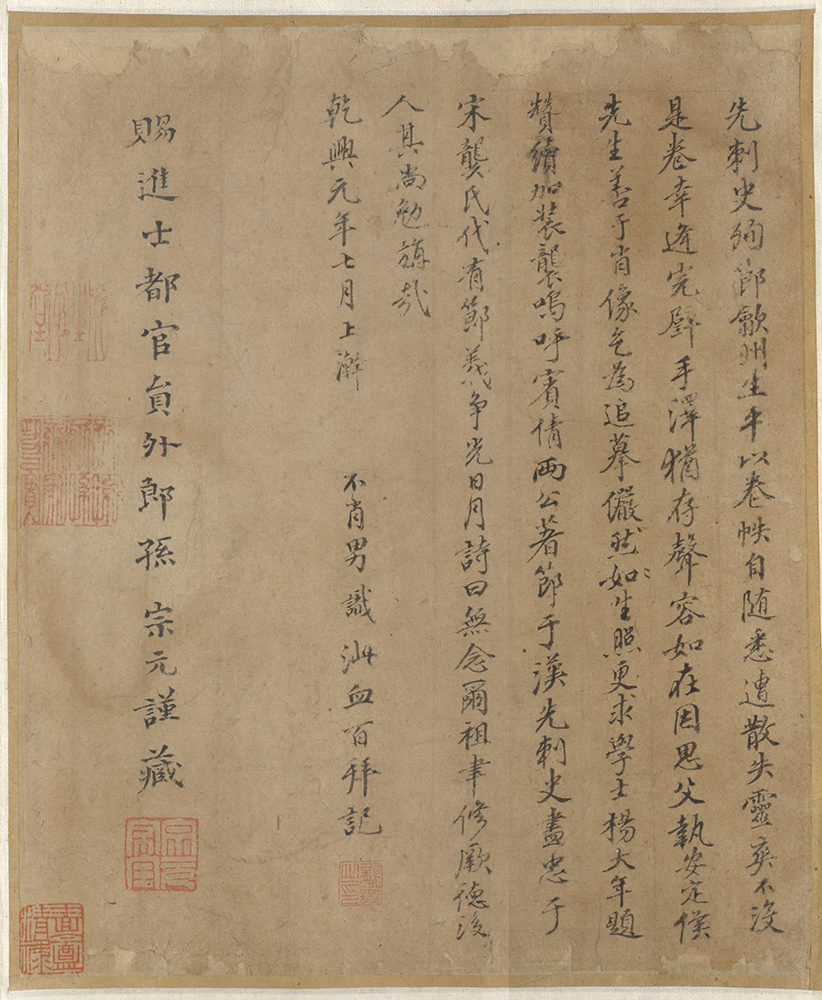 先刺史殉節歙州生平以卷帙自随悉遭散失靈爽不没
是卷幸適完歸手澤猶存聲容如在因思父執安定侯
先生善于肖像乞為追摹儼然如生照更求學士楊大年題
贊續加装襲嗚呼賓倩兩公著節于漢先刺史盡忠于
宋龔氏代有節義争光日月詩曰無念爾祖聿修厥德後
人其尚勉旃哉
乾興元年七月上澣
不肖男識泚血百拜記
賜進士都官員外郎孫宗元謹藏